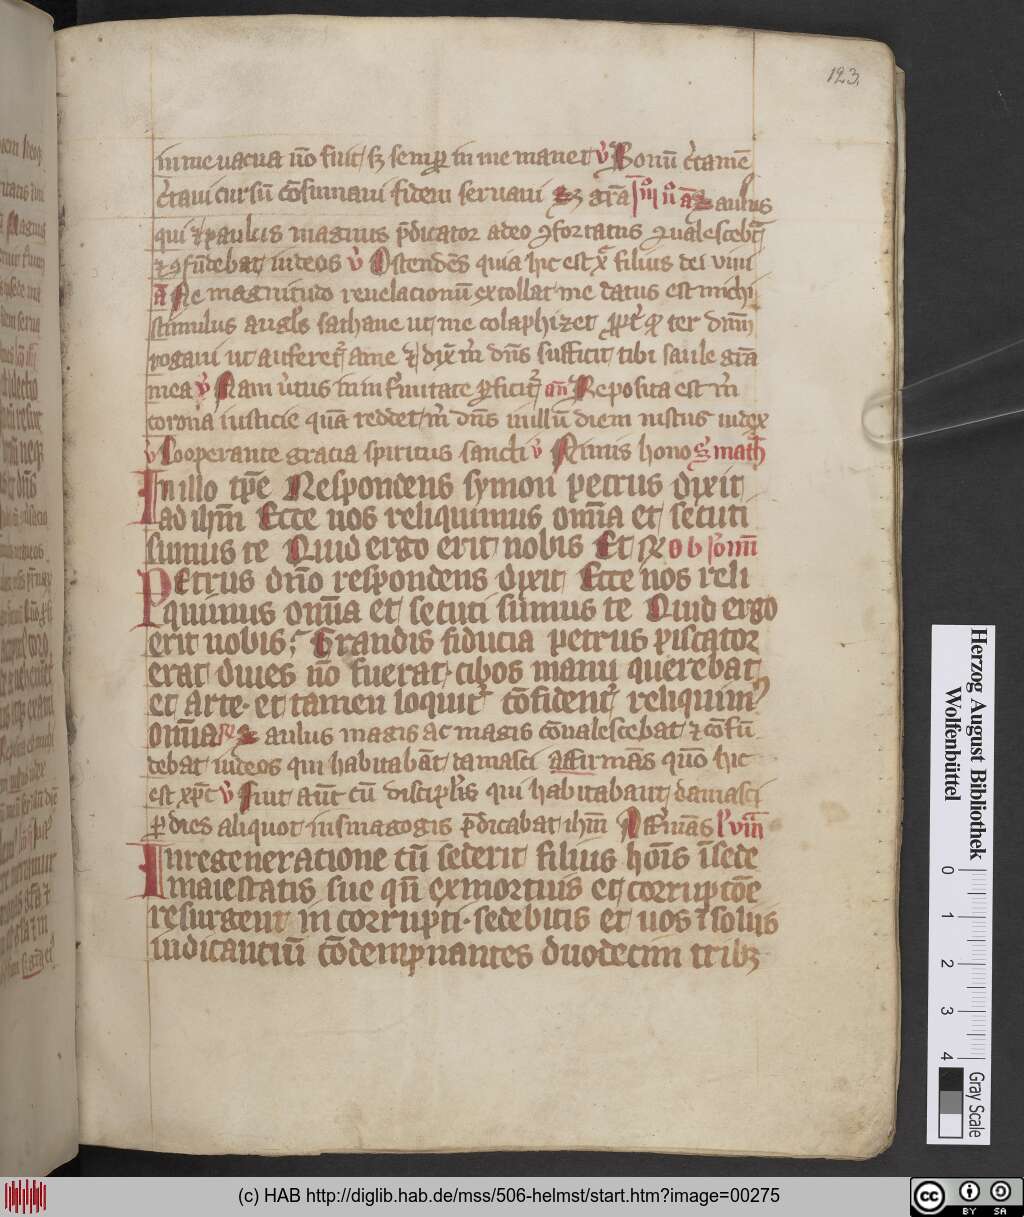 123.
in me vacua nō fuit sꝫ semꝑ in me manet v̓ Bonū c̓tamē
c̓taui cursū cōsumaui fidem seruaui gr̄a iiiº nº añ Saulus
qui ⁊ paulus magnus p̄dicator adeo ꝯfortatus ꝯualescebat
⁊ ꝯfūdebat iudeos v̓ Ostendēs quia hic est xp̄c filius dei viui
añ Ne magnitudo reuelacionū extollat me datus est michi
stimulus angl's sathane ut me colaphizet ꝓpt̓ qd ter dn̄m
rogaui ut auferet̓ a me ⁊ dix̄ m̄ dn̄s sufficit tibi saule gr̄a
mea v̓ Nam v̓tus in infirmitate ꝑficit̓ añ Reposita est m̄
corona iusticie quā reddet m̄ dn̄s in illū diem iustus iudex
v̓ Cooperante gracia spiritus sancti v̓ Nimis hono S. math
In illo tp̄e Respondens symon petrus dixit
ad ihm̄ Ecce nos reliquimus om̄ia et secuti
sumus te Quid ergo erit nobis Et
Petrus dn̄o respondens dixit Ecce nos reli
quimus om̄ia et secuti sumus te Quid ergo
erit nobis? Grandis fiducia petrus piscator
erat diues nō fuerat cibos manu querebat
et arte et tamen loquit̓ cōfident̓ reliquim'
om̄ia R̄ Saulus magis ac magis cōualescebat ⁊ cōfū
debat iudeos qui habitabāt damasci affirmās quō hic
est xp̄c v̓ Fuit aūt cū discipl'is qui habitabant damasci
ꝑ dies aliquot in sinagogis p̄dicabat ihm̄ Affirmās l' viii
In regeneratione cū sederit filius hoīs ī sede
maiestatis sue qn̄ ex mortuis et corruptōe
resurgent in corrupti sedebitis et uos ⁊ solus
iudicantiū cōdempnantes duodecim tribꝫ
Herzog August Bibliothek
Wolfenbüttel
0 1 2 3 4
Gray Scale
(c) HAB http://diglib.hab.de/mss/506-helmst/start.htm?image=00275
cc BY SA